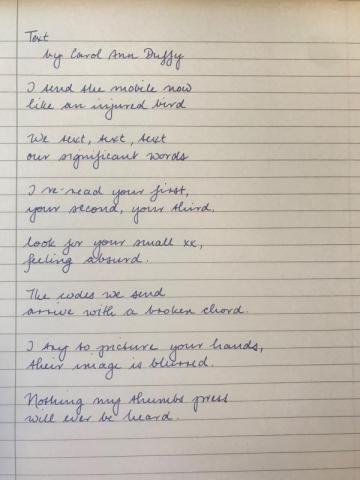 Text
by Carol Ann Duffy
I tend the mobile now
like an injured bird
We text, text, text
our significant words
I re-read your first,
your second, your third,
look for your small xx,
feeling absurd.
The codes we send
arrive with a broken chord.
I try to picture your hands,
their image is blurred.
Nothing my thumbs press
will ever be heard.